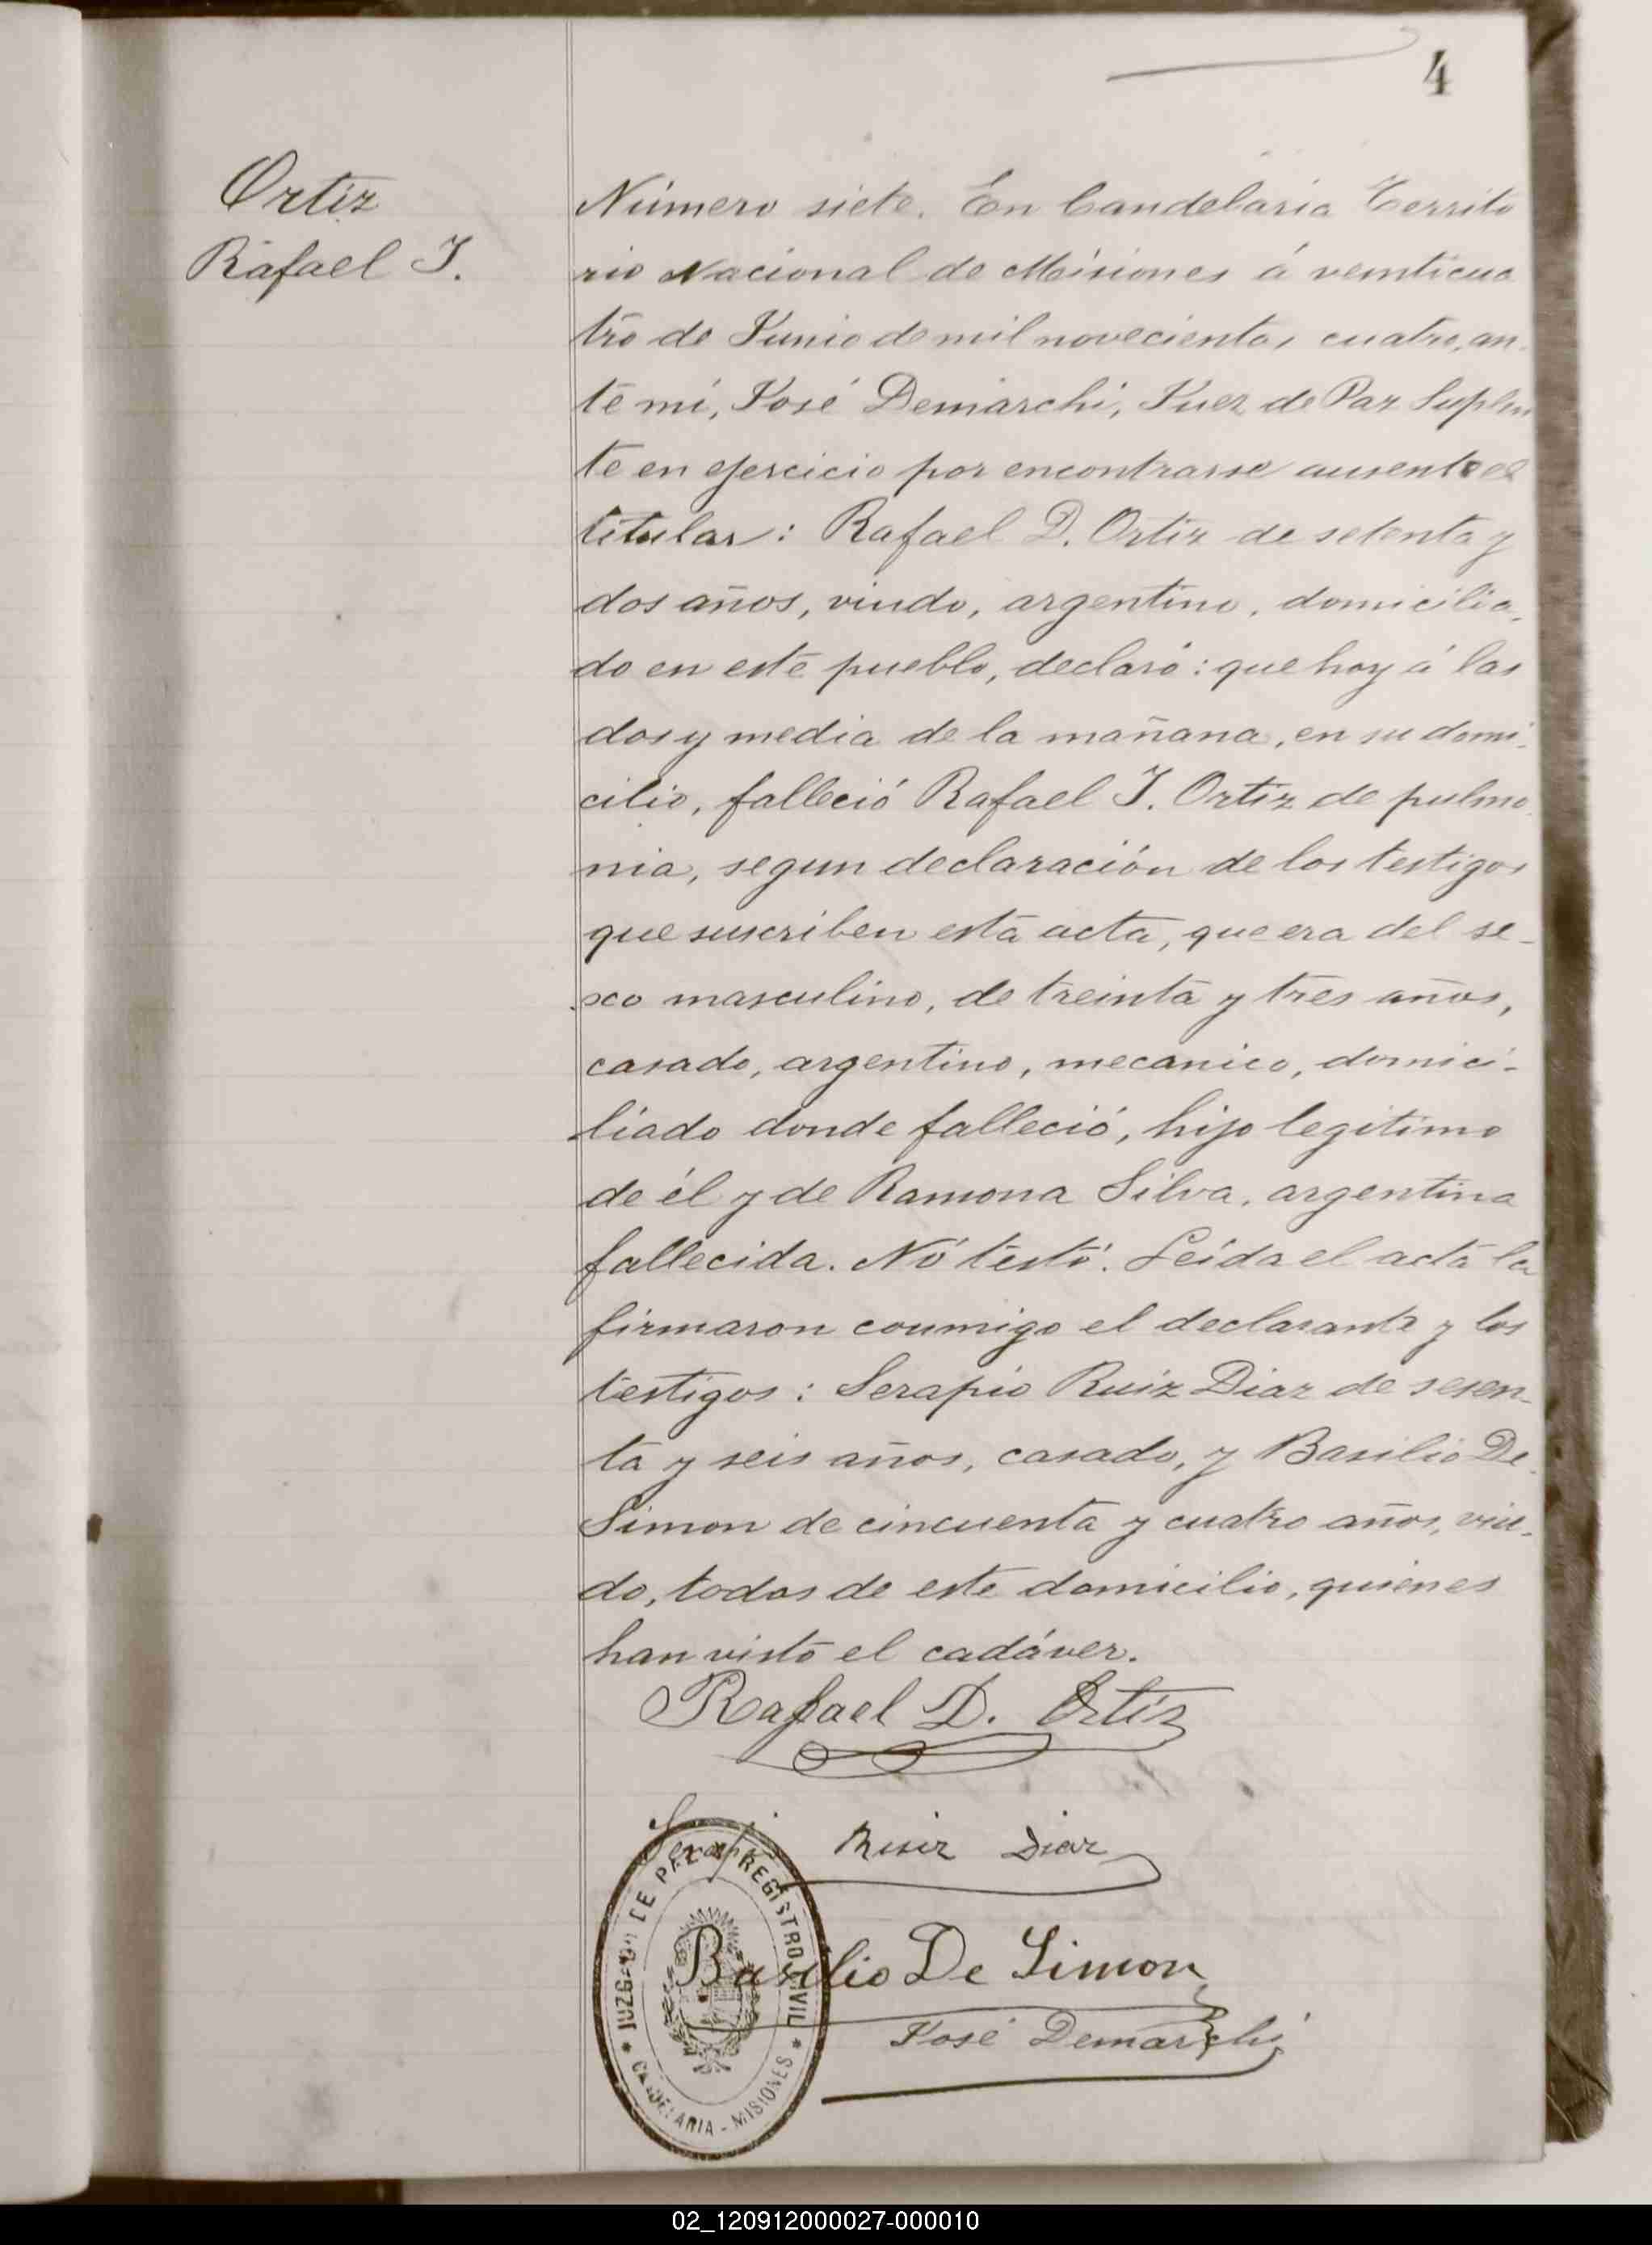 4
Ortiz
Rafael I.
Número siete. En Candelaria Territo
rio Nacional de Misiones á veinticua
tro de Junio de mil novecientos cuatro, an-
te mí, José Demarchi, Juez de Paz Suplen
te en ejercicio por encontrarse ausente el
titular: Rafael D. Ortiz de setenta y
dos años, viudo, argentino, domicilia-
do en este pueblo, declaró: que hoy á las
dos y media de la mañana, en su domi-
cilio, falleció Rafael I. Ortiz de pulmo
nia, segun declaración de los testigos
que suscriben esta acta, que era del se-
xo masculino, de treinta y tres años,
casado, argentino, mecanico, domici-
liado donde falleció, hijo legitimo
de él y de Ramona Silva, argentina
fallecida. Nó testó. Leída el acta la
firmaron conmigo el declarante y los
testigos: Serapio Ruiz Diaz de sesen-
ta y seis años, casado, y Basilio De-
Simon de cincuenta y cuatro años, viu-
do, todos de este domicilio, quienes
han visto el cadáver.
Rafael D. Ortiz
Serapio Ruiz Diaz
Basilio De Simon
José Demarchi
JUZGADO DE PAZ Y REGISTRO CIVIL
* CANDELARIA - MISIONES *
02_120912000027-000010